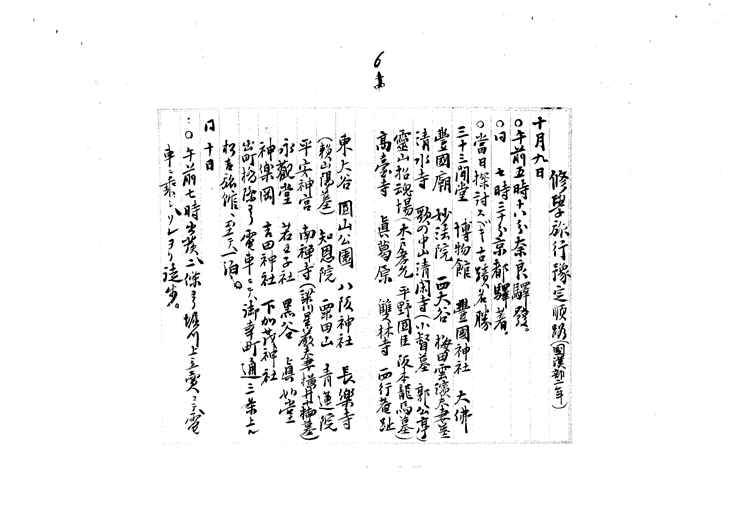 6
修學旅行豫定順路(國漢部二年)
十月九日
○午前五時十八分奈良驛發。
○同 七時三十分京都驛著。
○當日探討スベキ古蹟名勝
三十三間堂 博物館 豐國神社 大佛
豐國廟 妙法院 西大谷 梅田雲濱夫妻墓
清水寺 歌の中山清閑寺(小督墓 郭公亭)
靈山招魂場(木戸孝允 平野國臣 阪本龍馬墓)
高臺寺 眞葛原 雙林寺 西行菴趾
東大谷 圓山公園 八阪神社 長樂寺
(賴山陽墓) 知恩院 粟田山 青蓮院
平安神宮 南禪寺(梁川星巖夫妻横井小楠墓)
永觀堂 若王子社 黒谷 眞如堂
神樂岡 吉田神社 下加茂神社
出町 ヨリ電車ニテ 御幸町通三条上ル
旅館ニ至テ一泊。
同十日
○午前七時出發、二條ヨリ堀川上立賣マデ電
車ニ乘ソレヨリ徒歩。